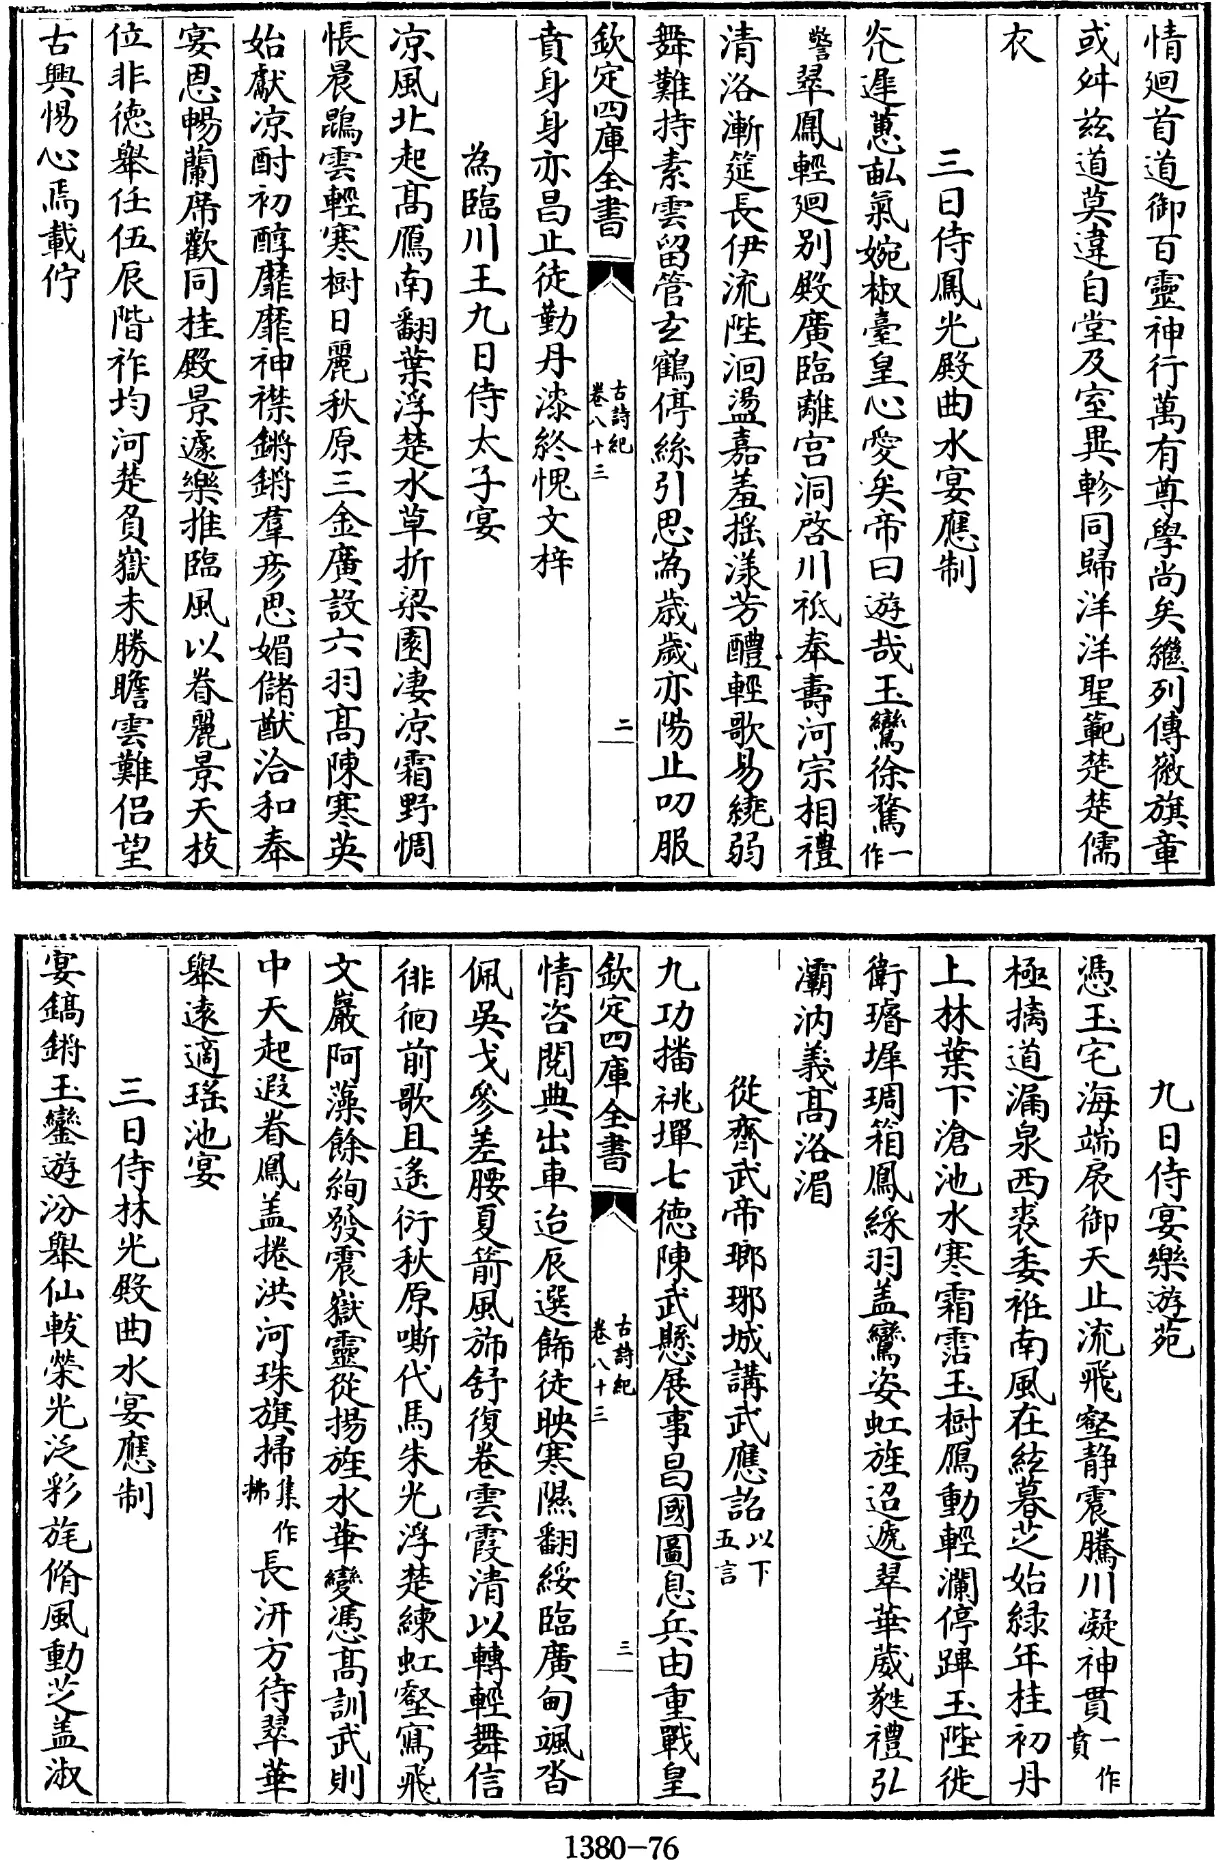 情廻首道御百靈神行萬有尊學尚矣繼列傳徽旗章
或舛兹道莫違自堂及室異軫同歸洋洋聖範楚楚儒
衣
三日侍鳳光殿曲水宴應制
光遲蕙畝氣婉椒臺皇心愛矣帝曰遊哉玉鸞徐騖一作
警翠鳳輕廻别殿廣臨離宫洞啓川祗奉夀河宗相禮
清洛漸筵長伊流陛洄盪嘉羞摇漾芳醴輕歌易繞弱
舞難持素雲留管玄鶴停絲引思為歲歲亦陽止叨服
賁身身亦昌止徒勤丹漆終愧文梓
欽定四庫全書
古詩紀
卷八十三
二
為臨川王九日侍太子宴
凉風北起高鴈南翻葉浮楚水草折梁園凄凉霜野惆
悵晨鵾雲輕寒樹日麗秋原三金廣設六羽高陳寒英
始獻凉酎初醇靡靡神襟鏘鏘羣彦思媚儲猷洽和奉
宴恩暢蘭席歡同桂殿景遽樂推臨風以眷麗景天枝
位非德舉任伍辰階祚均河楚負嶽未勝瞻雲難侣望
古興惕心焉載佇
九日侍宴樂游苑
憑玉宅海端扆御天止流飛壑静震騰川凝神貫一作賁
極摛道漏泉西裘委袵南風在絃暮芝始緑年桂初丹
上林葉下滄池水寒霜霑玉樹鴈動輕瀾停蹕玉陛徙
衛璿墀琱箱鳳綵羽盖鸞姿虹旌迢遞翠華葳蕤禮弘
灞汭義高洛湄
從齊武帝瑯琊城講武應詔以下五言
九功播祧墠七德陳武懸展事昌國圖息兵由重戰皇
欽定四庫全書
古詩紀
卷八十三
三
情咨閱典出車迨辰選飾徒映寒隰翻綏臨廣甸颯沓
佩吳戈參差腰夏箭風旆舒復卷雲霞清以轉輕舞信
徘徊前歌且遥衍秋原嘶代馬朱光浮楚練虹壑寫飛
文巖阿藻餘絢發震嶽靈從揚旌水華變憑高訓武則
中天起遐眷鳳盖捲洪河珠旗掃集作拂長汧方待翠華
舉遠適瑶池宴
三日侍林光殿曲水宴應制
宴鎬鏘玉鑾遊汾舉仙軷榮光泛彩旄脩風動芝盖淑
1380-76